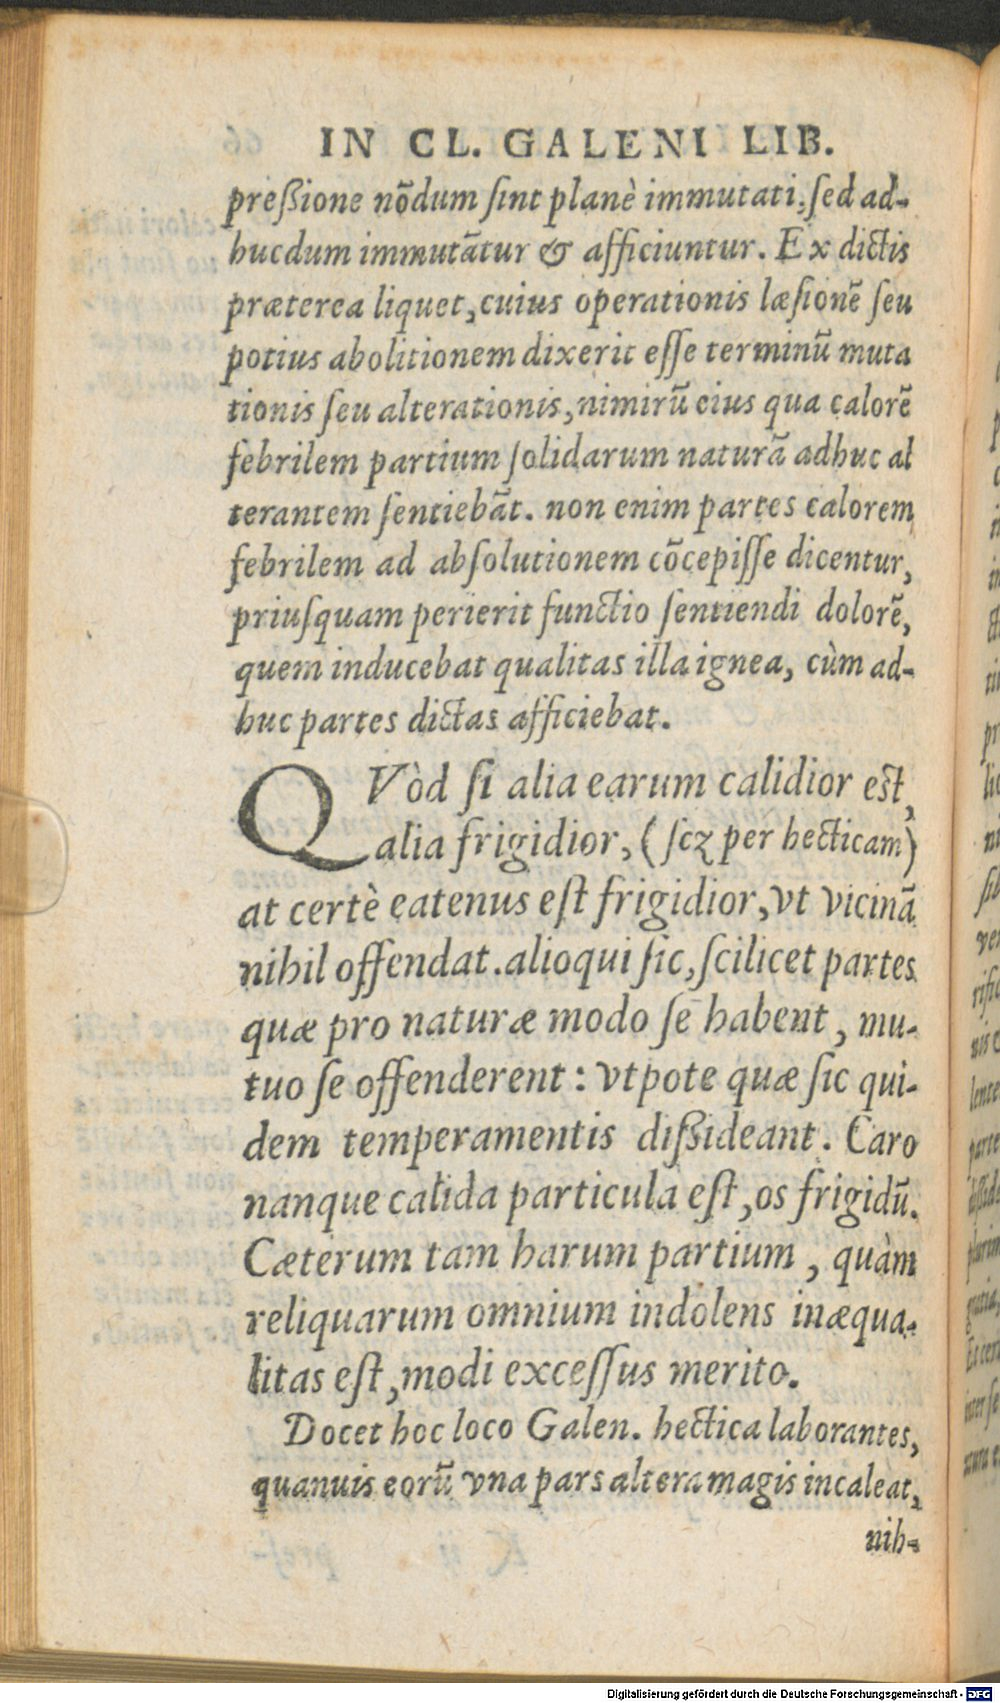 IN CL. GALENI LIB.
preßione nõdum ſint planè immutati, ſed ad-
hucdum immutãtur & afficiuntur. Ex dictis
præterea liquet, cuius operationis læſionẽ ſeu
potius abolitionem dixerit eſſe terminũ muta
tionis ſeu alterationis, nimirũ eius qua calorẽ
febrilem partium ſolidarum naturã adhuc al
terantem ſentiebãt. non enim partes calorem
febrilem ad abſolutionem cõcepiſſe dicentur,
priuſquam perierit functio ſentiendi dolorẽ,
quem inducebat qualitas illa ignea, cùm ad-
huc partes dictas afficiebat.
QVòd ſi alia earum calidior eſt,
alia frigidior, (ſcꝫ per hecticam)
at certè eatenus eſt frigidior, vt vicinã
nihil offendat. alioqui ſic, ſcilicet partes
quæ pro naturæ modo ſe habent, mu-
tuo ſe offenderent: vtpote quæ ſic qui-
dem temperamentis dißideant. Caro
nanque calida particula eſt, os frigidũ.
Cæterum tam harum partium, quàm
reliquarum omnium indolens inæqua-
litas eſt, modi exceſſus merito.
Docet hoc loco Galen. hectica laborantes,
quanuis eorũ vna pars altera magis incaleat,
nih-
Digitalisierung gefördert durch die Deutsche Forschungsgemeinschaft - DFG